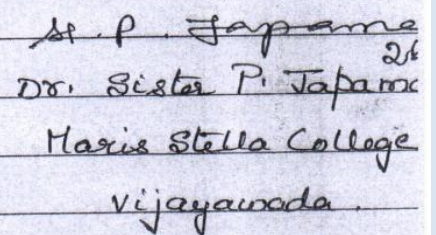 Sr. P. Japama
Dr. Sister P. Japama
Maris Stella College
Vijayawada.